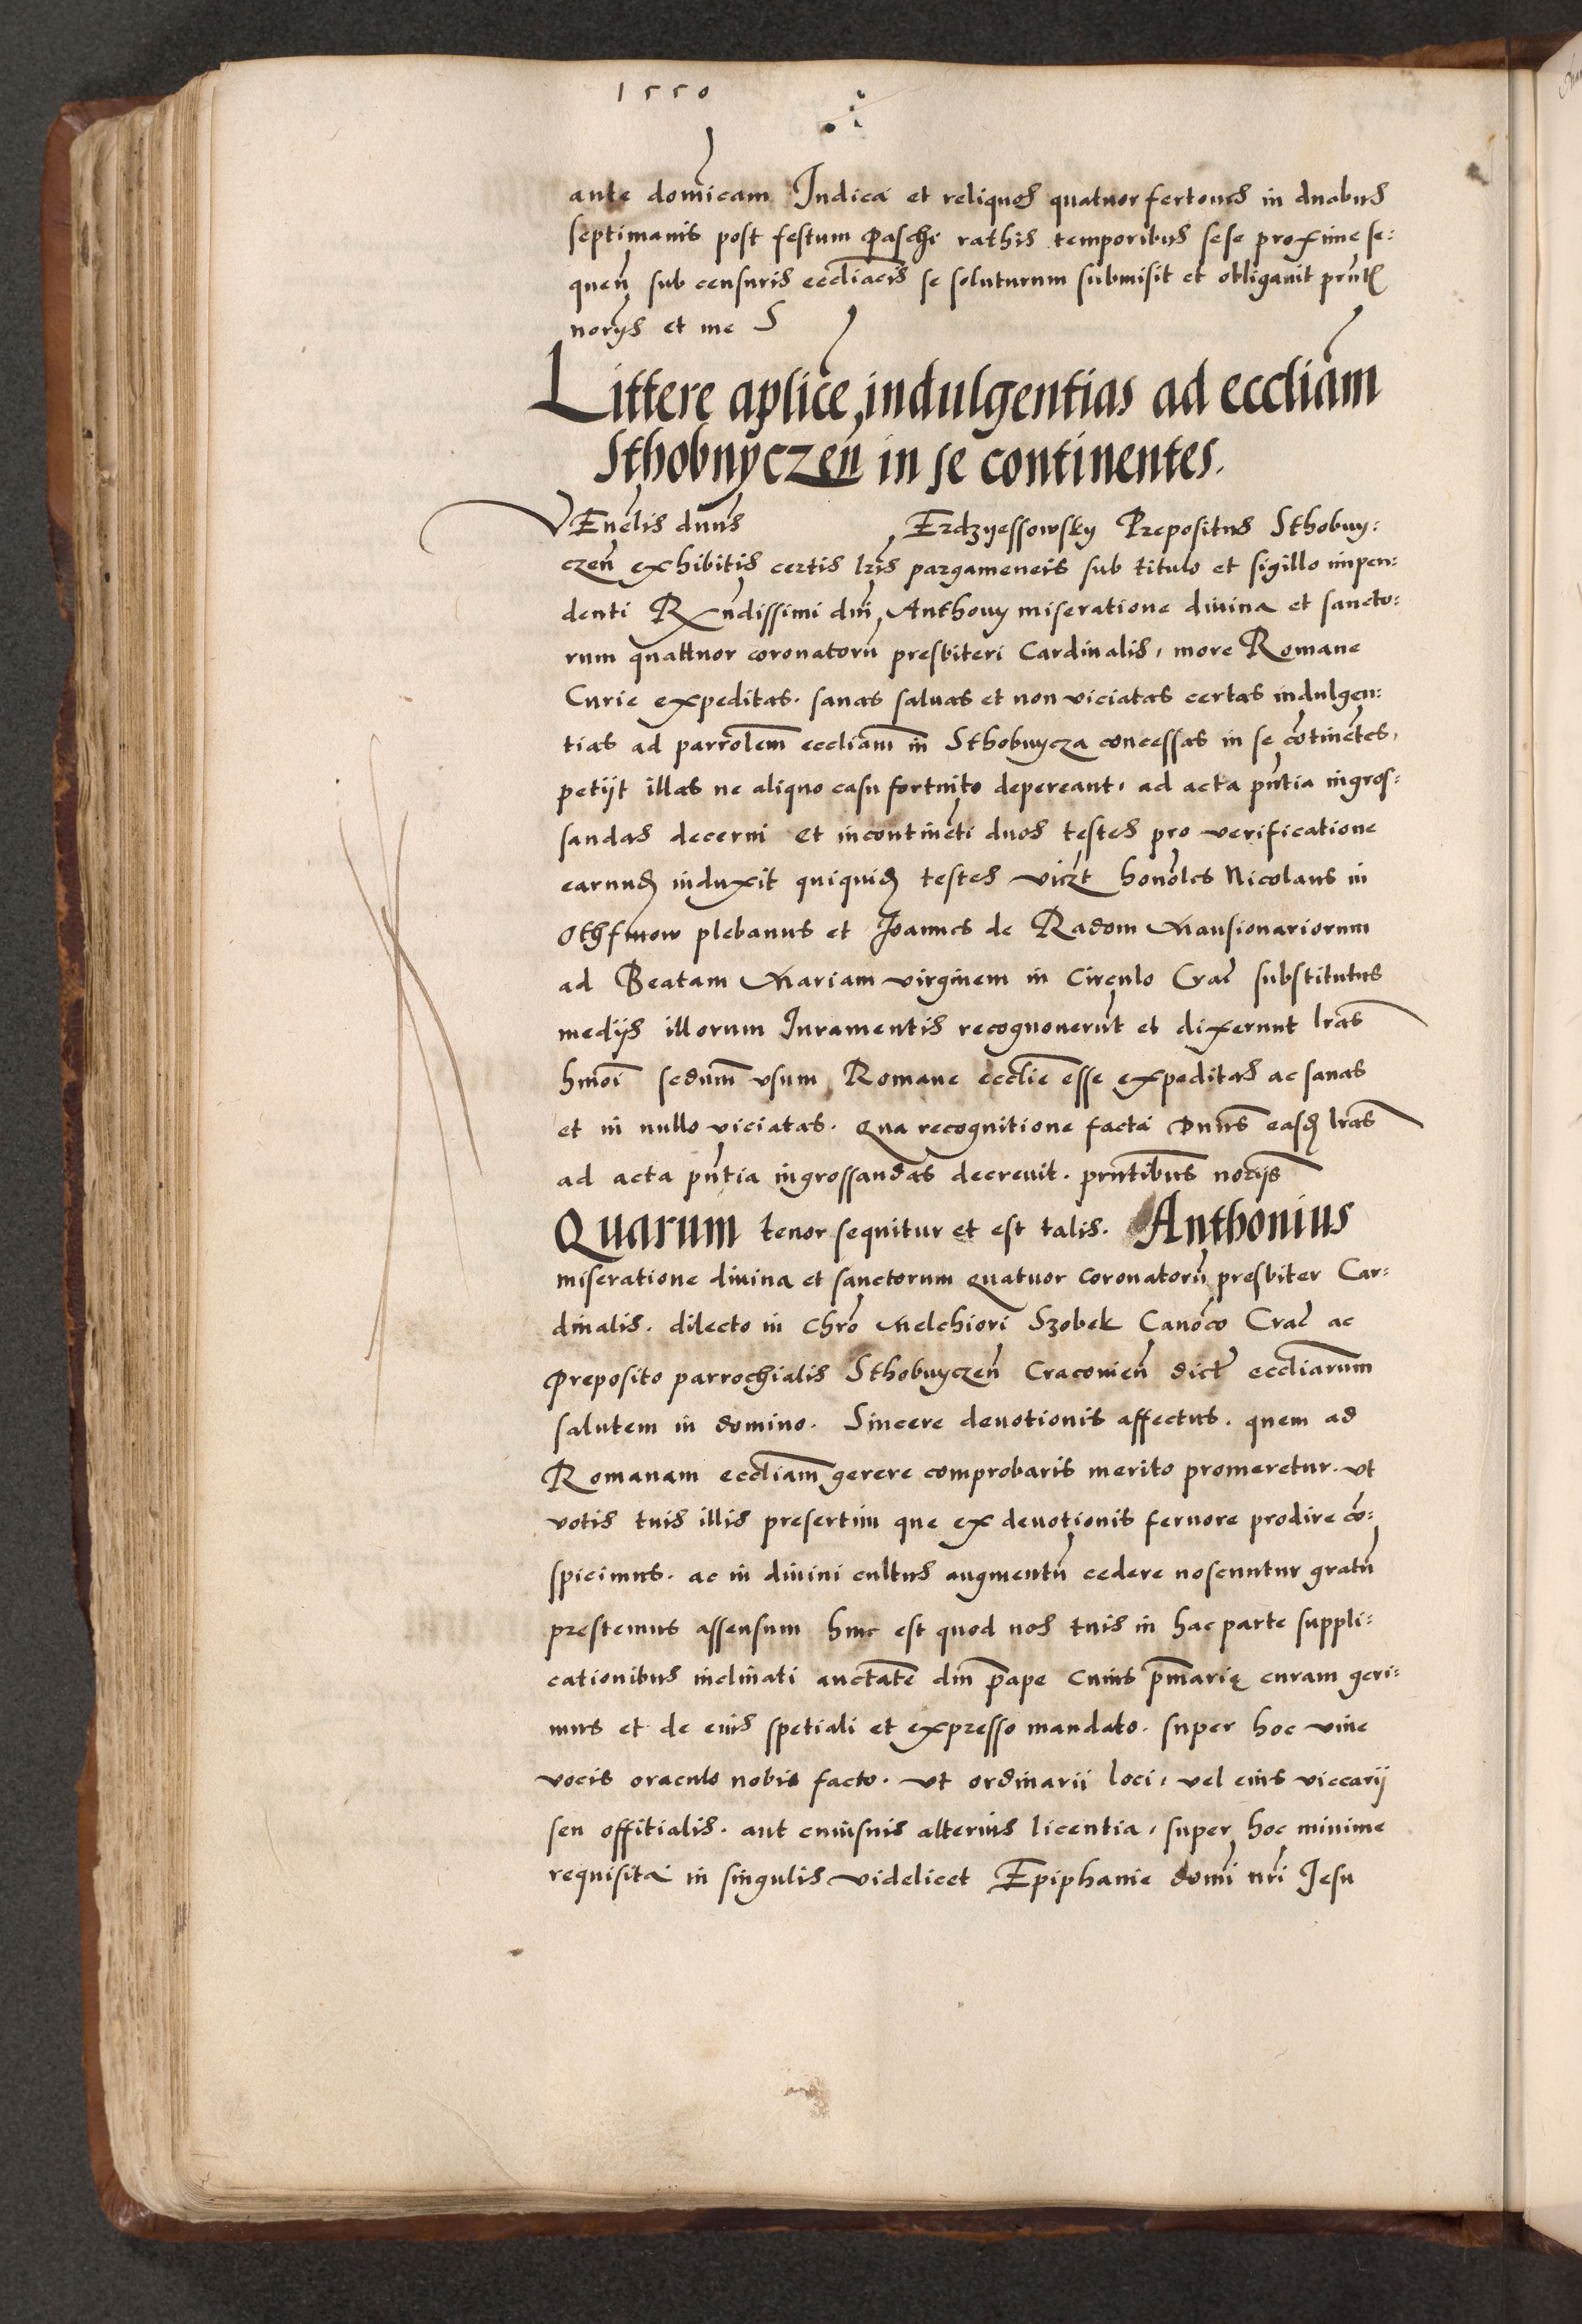 1550
ante domĩcam Iudica et reliquos quatuor fertones in duabus
septimanis post festum Pasche rathis temporibus sese proxime se:
queñ sub censuris eccliacis se soluturum submisit et obligauit prñt
norijs et me S
Littere aplice, indulgentias ad eccliam
Sthobnyczeñ in se continentes.
VEnelis dnns Erdzyessowsky Prepositus Sthobny:
czeñ exhibitis certis lris pargameneis sub titulo et sigillo impen:
denti Rxndissimi dni Anthony miseratione diuina et sancto:
rum quattuor coronatorũ presbiteri Cardinalis, more Romane
Curie expeditas. sanas saluas et non viciatas certas indulgen:
tias ad parrolem eccliam in Sthobnycza concessas in se cõtinẽtes,
petijt illas ne aliquo casu fortuito depereant, ad acta pñtia ingros:
sandas decerni et incontinẽti duos testes pro verificatione
earund induxit quiquid testes viczt honolẽs Nicolaus in
Othfinow plebanus et Joannes de Radom Mansionariorum
ad Beatam Mariam virginem in Circulo Crac substitutus
medijs illorum Iuramentis recognouerũt et dixerunt lras
hmõi sedum vsum Romane ecclie esse expeditas ac sanas
et in nullo viciatas. Qua recognitione facta Dnns easd lras
ad acta pñtia ingrossandas decreuit. prñtibus norijs
Quarum tenor sequitur et est talis. Anthonius
miseratione diuina et sanctorum quatuor coronatorũ presbiter Car:
dinalis. dilecto in Chro Melchiori Szobek Canõco Crac ac
Preposito parrochialis Sthobnyczeñ Craconieñ dict eccliarum
salutem in domino. Sincere deuotionis affectus. quem ad
Romanam eccliam gerere comprobaris merito promeretur. vt
votis tuis illis presertim que ex deuotionis feruore prodire cõ:
spicimus. ac in diuini cultus augmentũ cedere noscuntur gratũ
prestemus assensum hinc est quod nos tuis in hac parte suppli:
cationibus inclinati auctate dni pape Cuius pmarię curam geri:
mus et de eius spetiali et expresso mandato. super hoc viue
vocis oraculo nobis facto. vt ordinarii loci, vel eius viccarij
seu offitialis. aut cuiusuis alterius licentia, super hoc minime
requisita in singulis videlicet Epiphanie domi nri Jesu